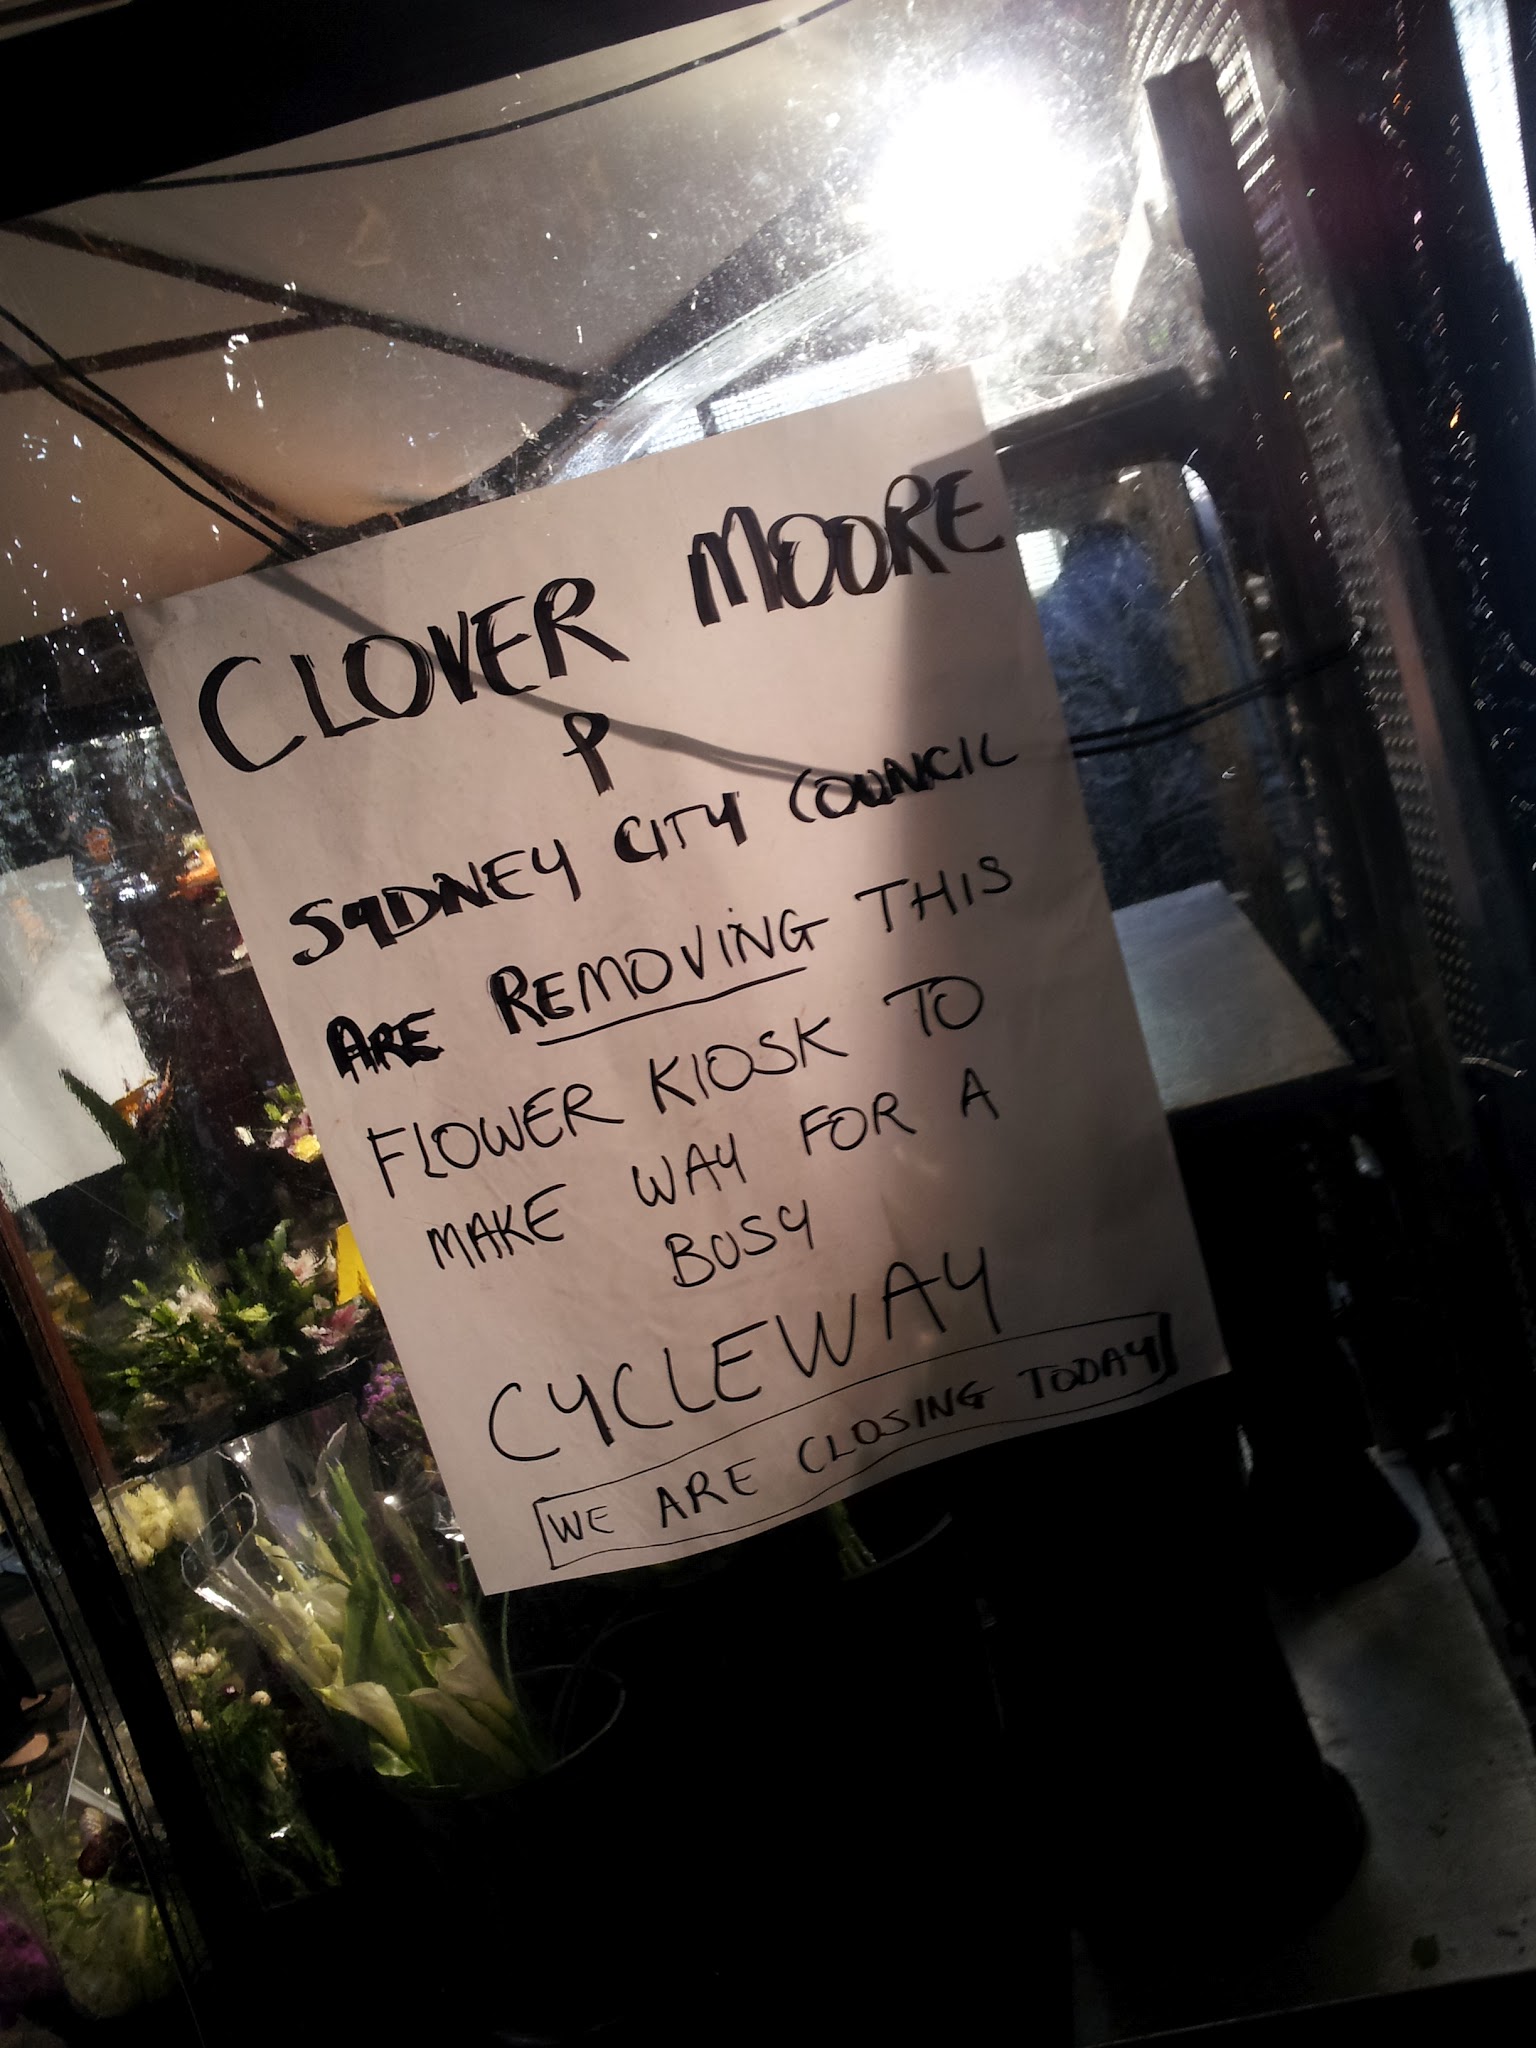 CLOVER MOORE
P
SYDNEY CITY COUNCIL
ARE REMOVING THIS
FLOWER KIOSK TO
MAKE WAY FOR A
BUSY
CYCLEWAY
WE ARE CLOSING TODAY